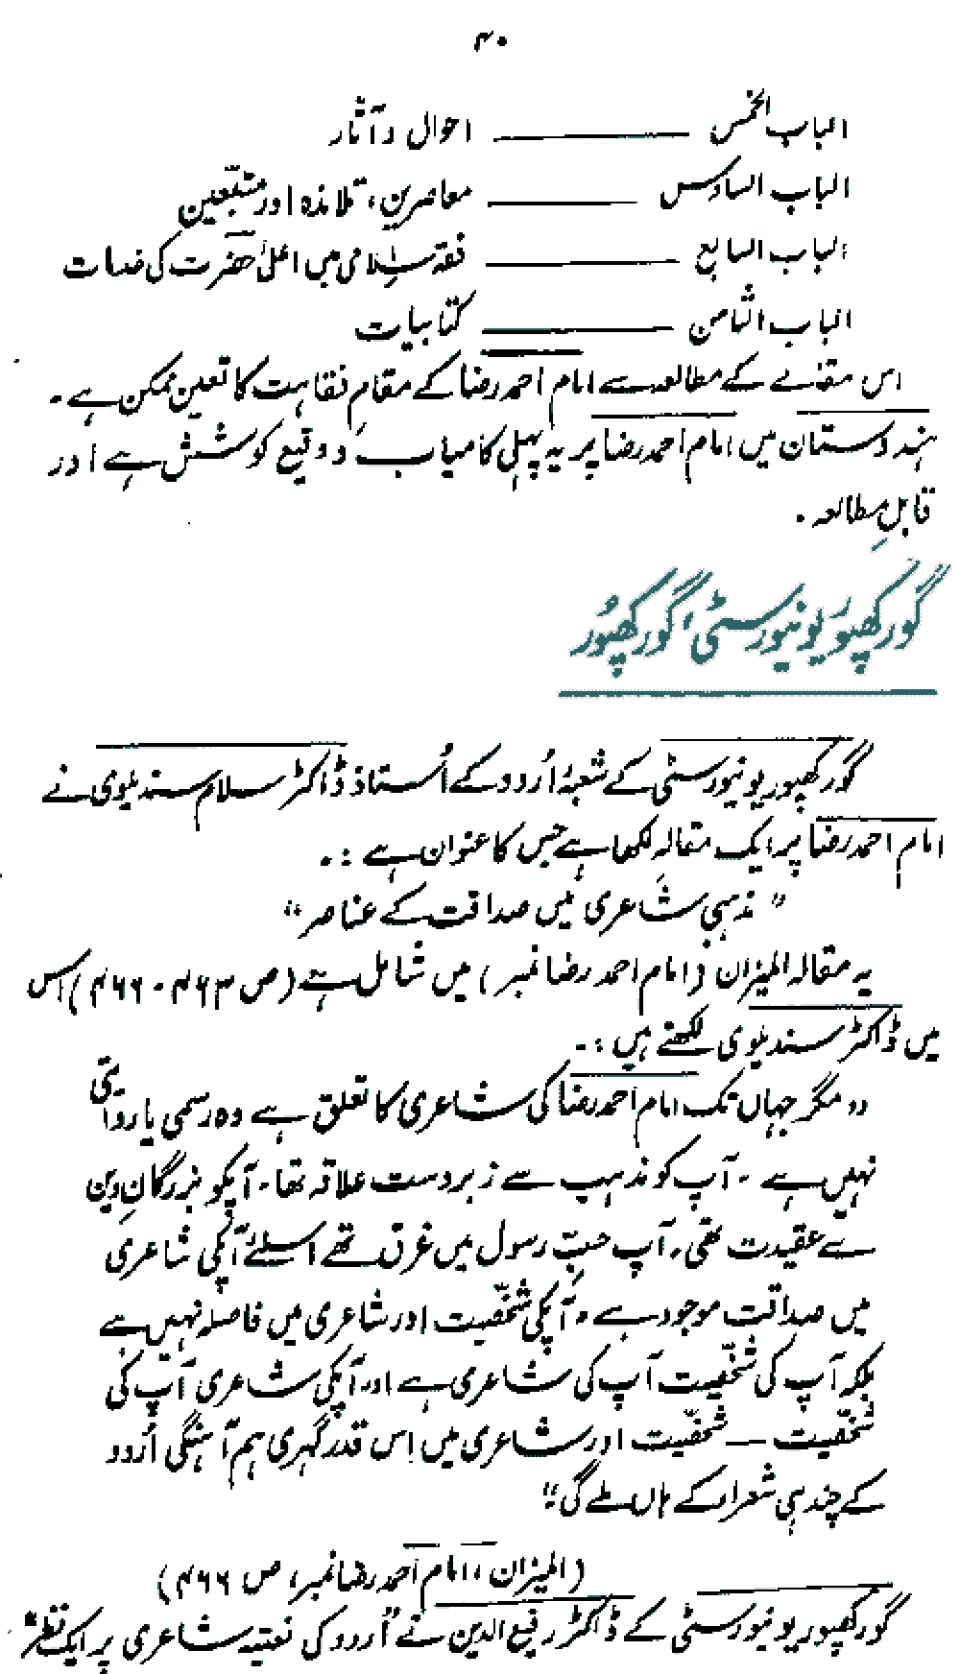 ۴۰
الباب الخمس ــــــــ احوال و آثار
الباب السادس ــــــــ معاصرین، تلامذہ اور متبّعین
الباب السابع ــــــــ فقہ اسلامی میں اعلیٰ حضرت کی خدمات
الباب الثامن ــــــــ کتابیات
اس مقالے کے مطالعہ سے امام احمد رضا کے مقامِ فقاہت کا تعین ممکن ہے ۔
ہندوستان میں امام احمد رضا پر یہ پہلی کامیاب و وقیع کوشش ہے اور
قابلِ مطالعہ ۔
گورکھپور یونیورسٹی، گورکھپُور
گورکھپور یونیورسٹی کے شعبۂ اُردو کے اُستاذ ڈاکٹر سلام سندیلوی نے
امام احمد رضا پر ایک مقالہ لکھا ہے جس کا عنوان ہے :۔
” مذہبی شاعری میں صداقت کے عناصر “
یہ مقالہ المیزان (امام احمد رضا نمبر) میں شامل ہے (ص ۴۶۳ ـ ۴۶۶) اس
میں ڈاکٹر سندیلوی لکھتے ہیں :۔
” مگر جہاں تک امام احمد رضا کی شاعری کا تعلق ہے وہ رسمی یا روایتی
نہیں ہے ۔ آپ کو مذہب سے زبردست علاقہ تھا ۔ آپکو بزرگانِ دین
سے عقیدت تھی ۔ آپ حبِّ رسول میں غرق تھے اسلئے آپکی شاعری
میں صداقت موجود ہے ۔ آپکی شخصّیت اور شاعری میں فاصلہ نہیں ہے
بلکہ آپ کی شخصّیت آپ کی شاعری ہے اور آپکی شاعری آپ کی
شخصّیت — شخصّیت اور شاعری میں اِس قدر گہری ہم آہنگی اُردو
کے چند ہی شعراء کے ہاں ملے گی “
(المیزان ، امام احمد رضا نمبر، ص ۴۶۶)
گورکھپور یونیورسٹی کے ڈاکٹر رفیع الدین نے ”اُردو کی نعتیہ شاعری پر ایک نظر“